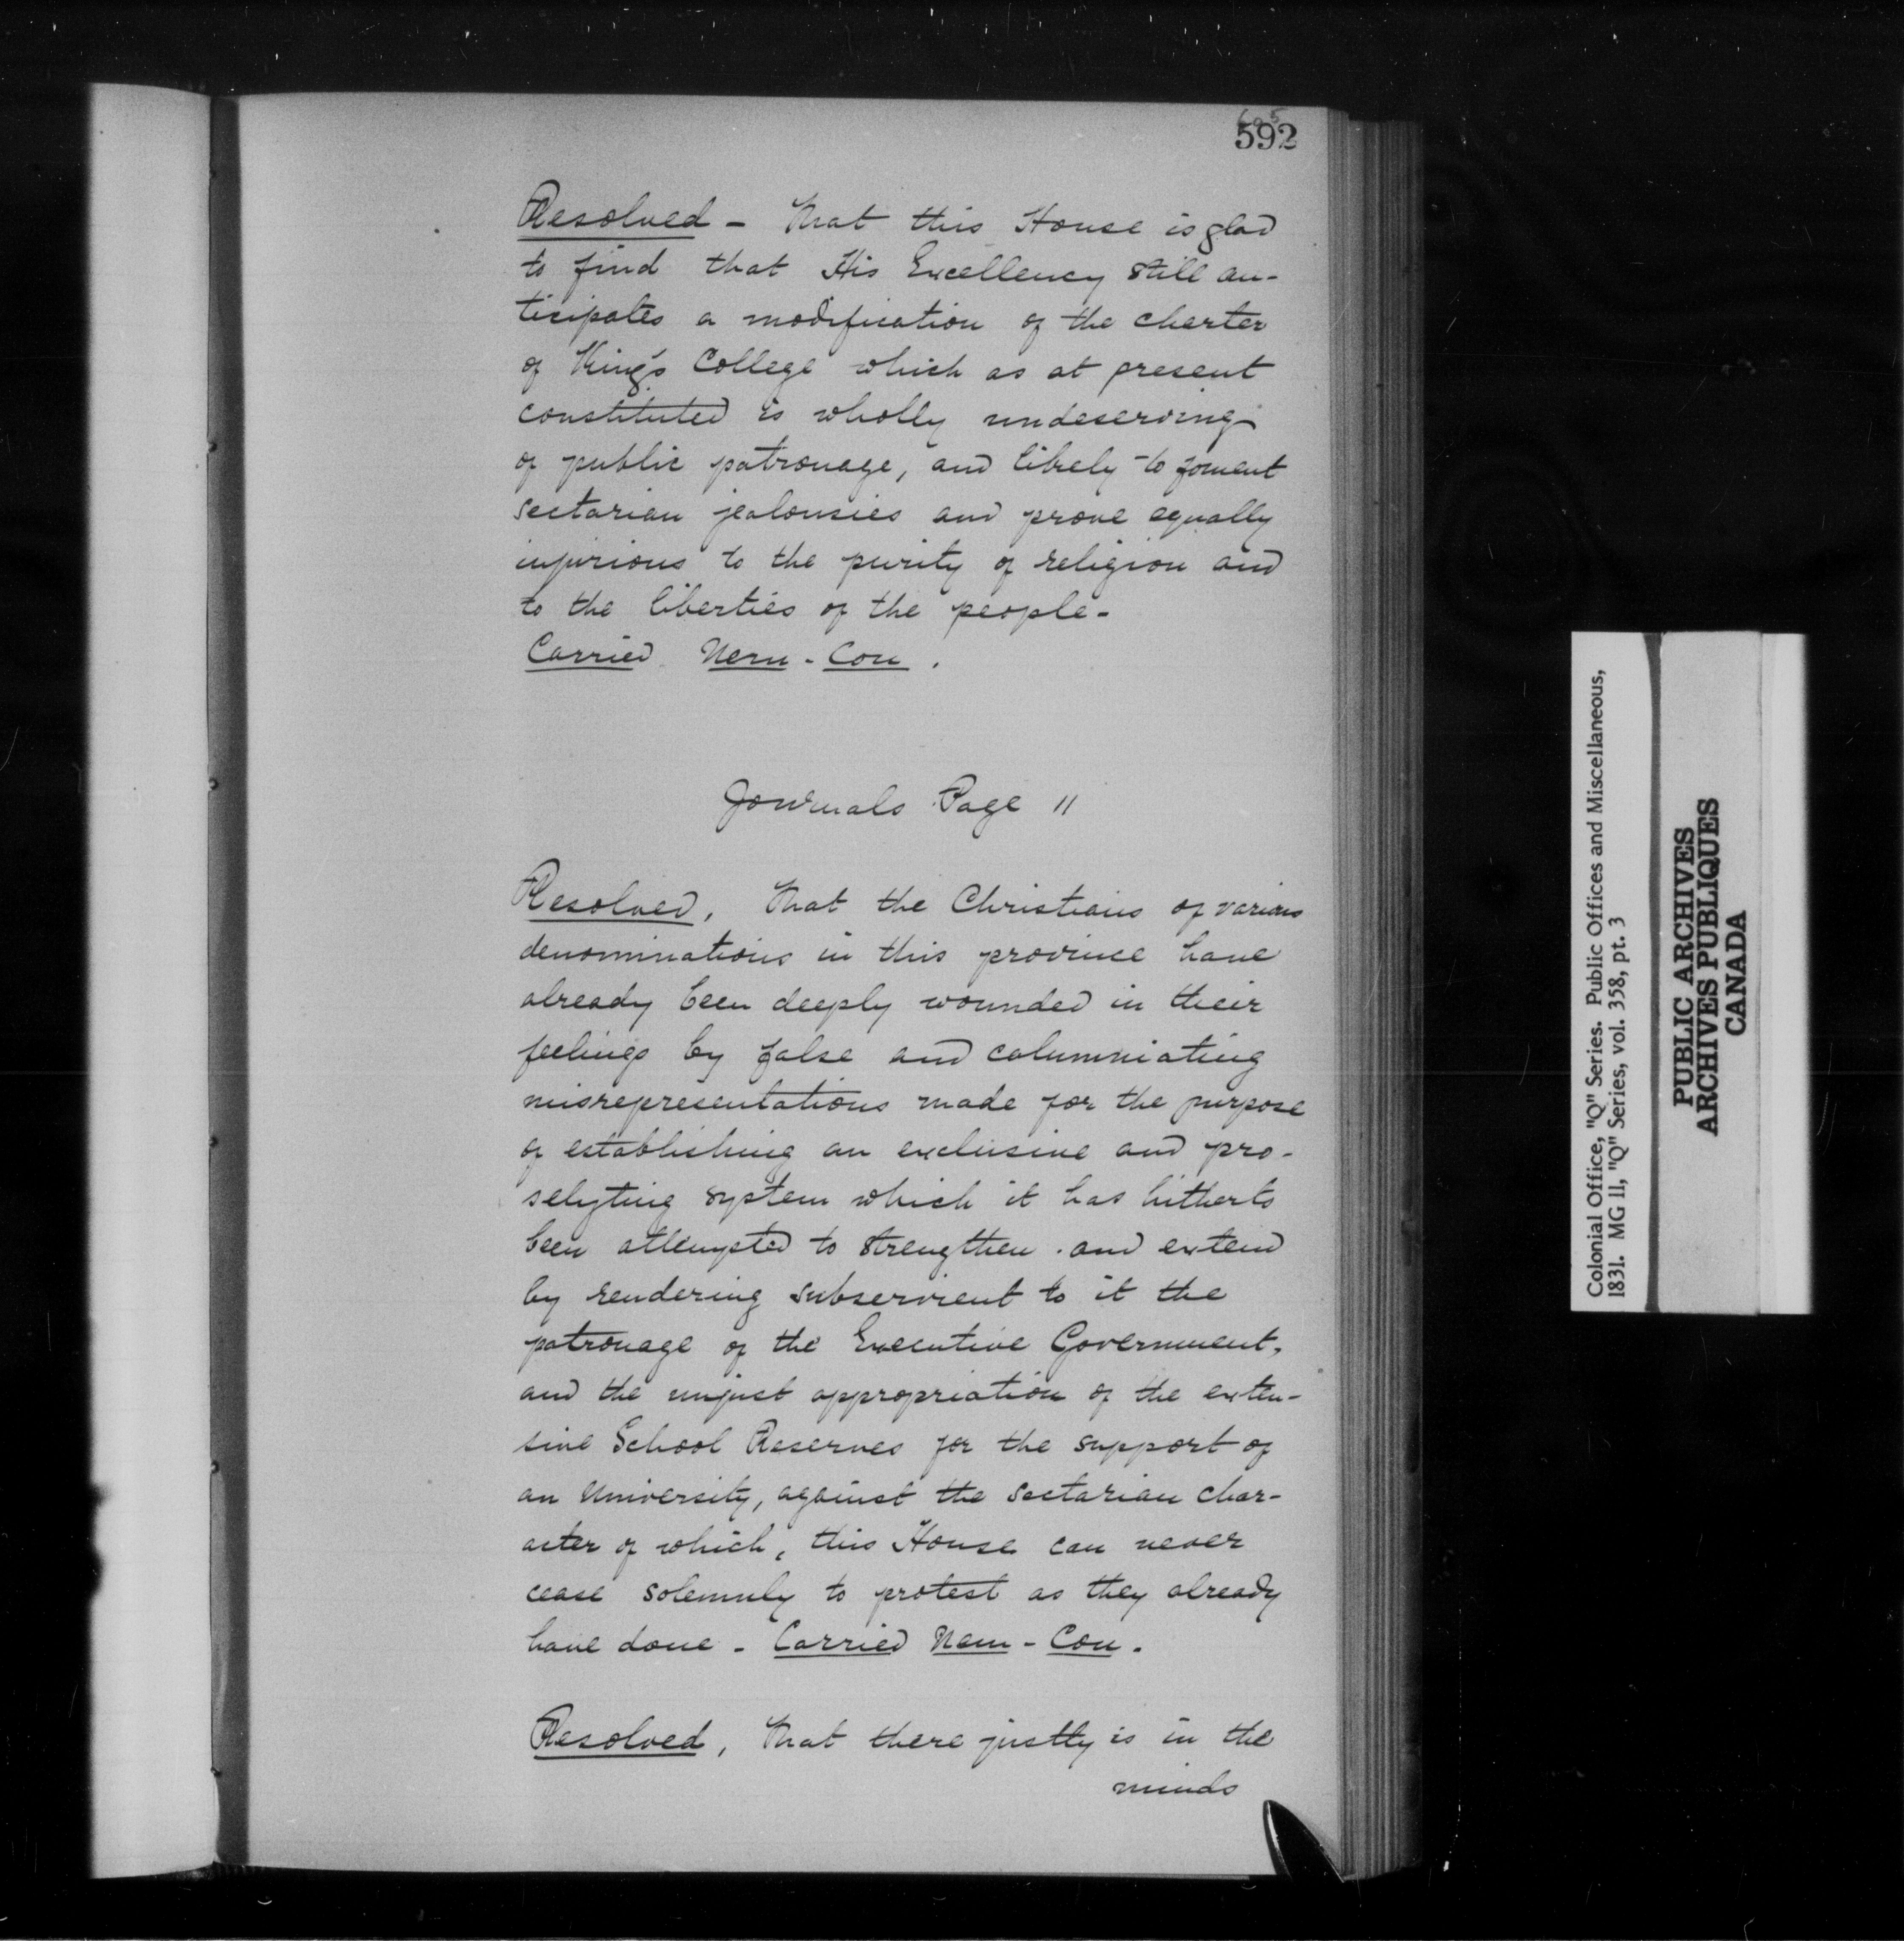 592
Resolved - That this House is glad
to find that His Excellency still an-
ticipates a modification of the charter
of King's College which as at present
constituted is wholly undeserving
of public patronage, and likely to foment
sectarian jealousies and prove equally
injurious to the purity of religion and
to the liberties of the people -
Carried Nem - Con .
Journals Page 11
Resolved, That the Christians of various
denominations in this province have
already been deeply wounded in their
feelings by false and calumniating
misrepresentations made for the purpose
of establishing an exclusive and pro-
selyting system which it has hitherto
been attempted to strengthen and extend
by rendering subservient to it the
patronage of the Executive Government,
and the unjust appropriation of the exten-
sive School Reserves for the support of
an University, against the sectarian char-
acter of which, this House can never
cease solemnly to protest as they already
have done - Carried Nem - Con -
Resolved, That there justly is in the
minds
Colonial Office, "Q" Series. Public Offices and Miscellaneous,
1831. MG 11, "Q" Series, vol. 358, pt. 3
PUBLIC ARCHIVES
ARCHIVES PUBLIQUES
CANADA